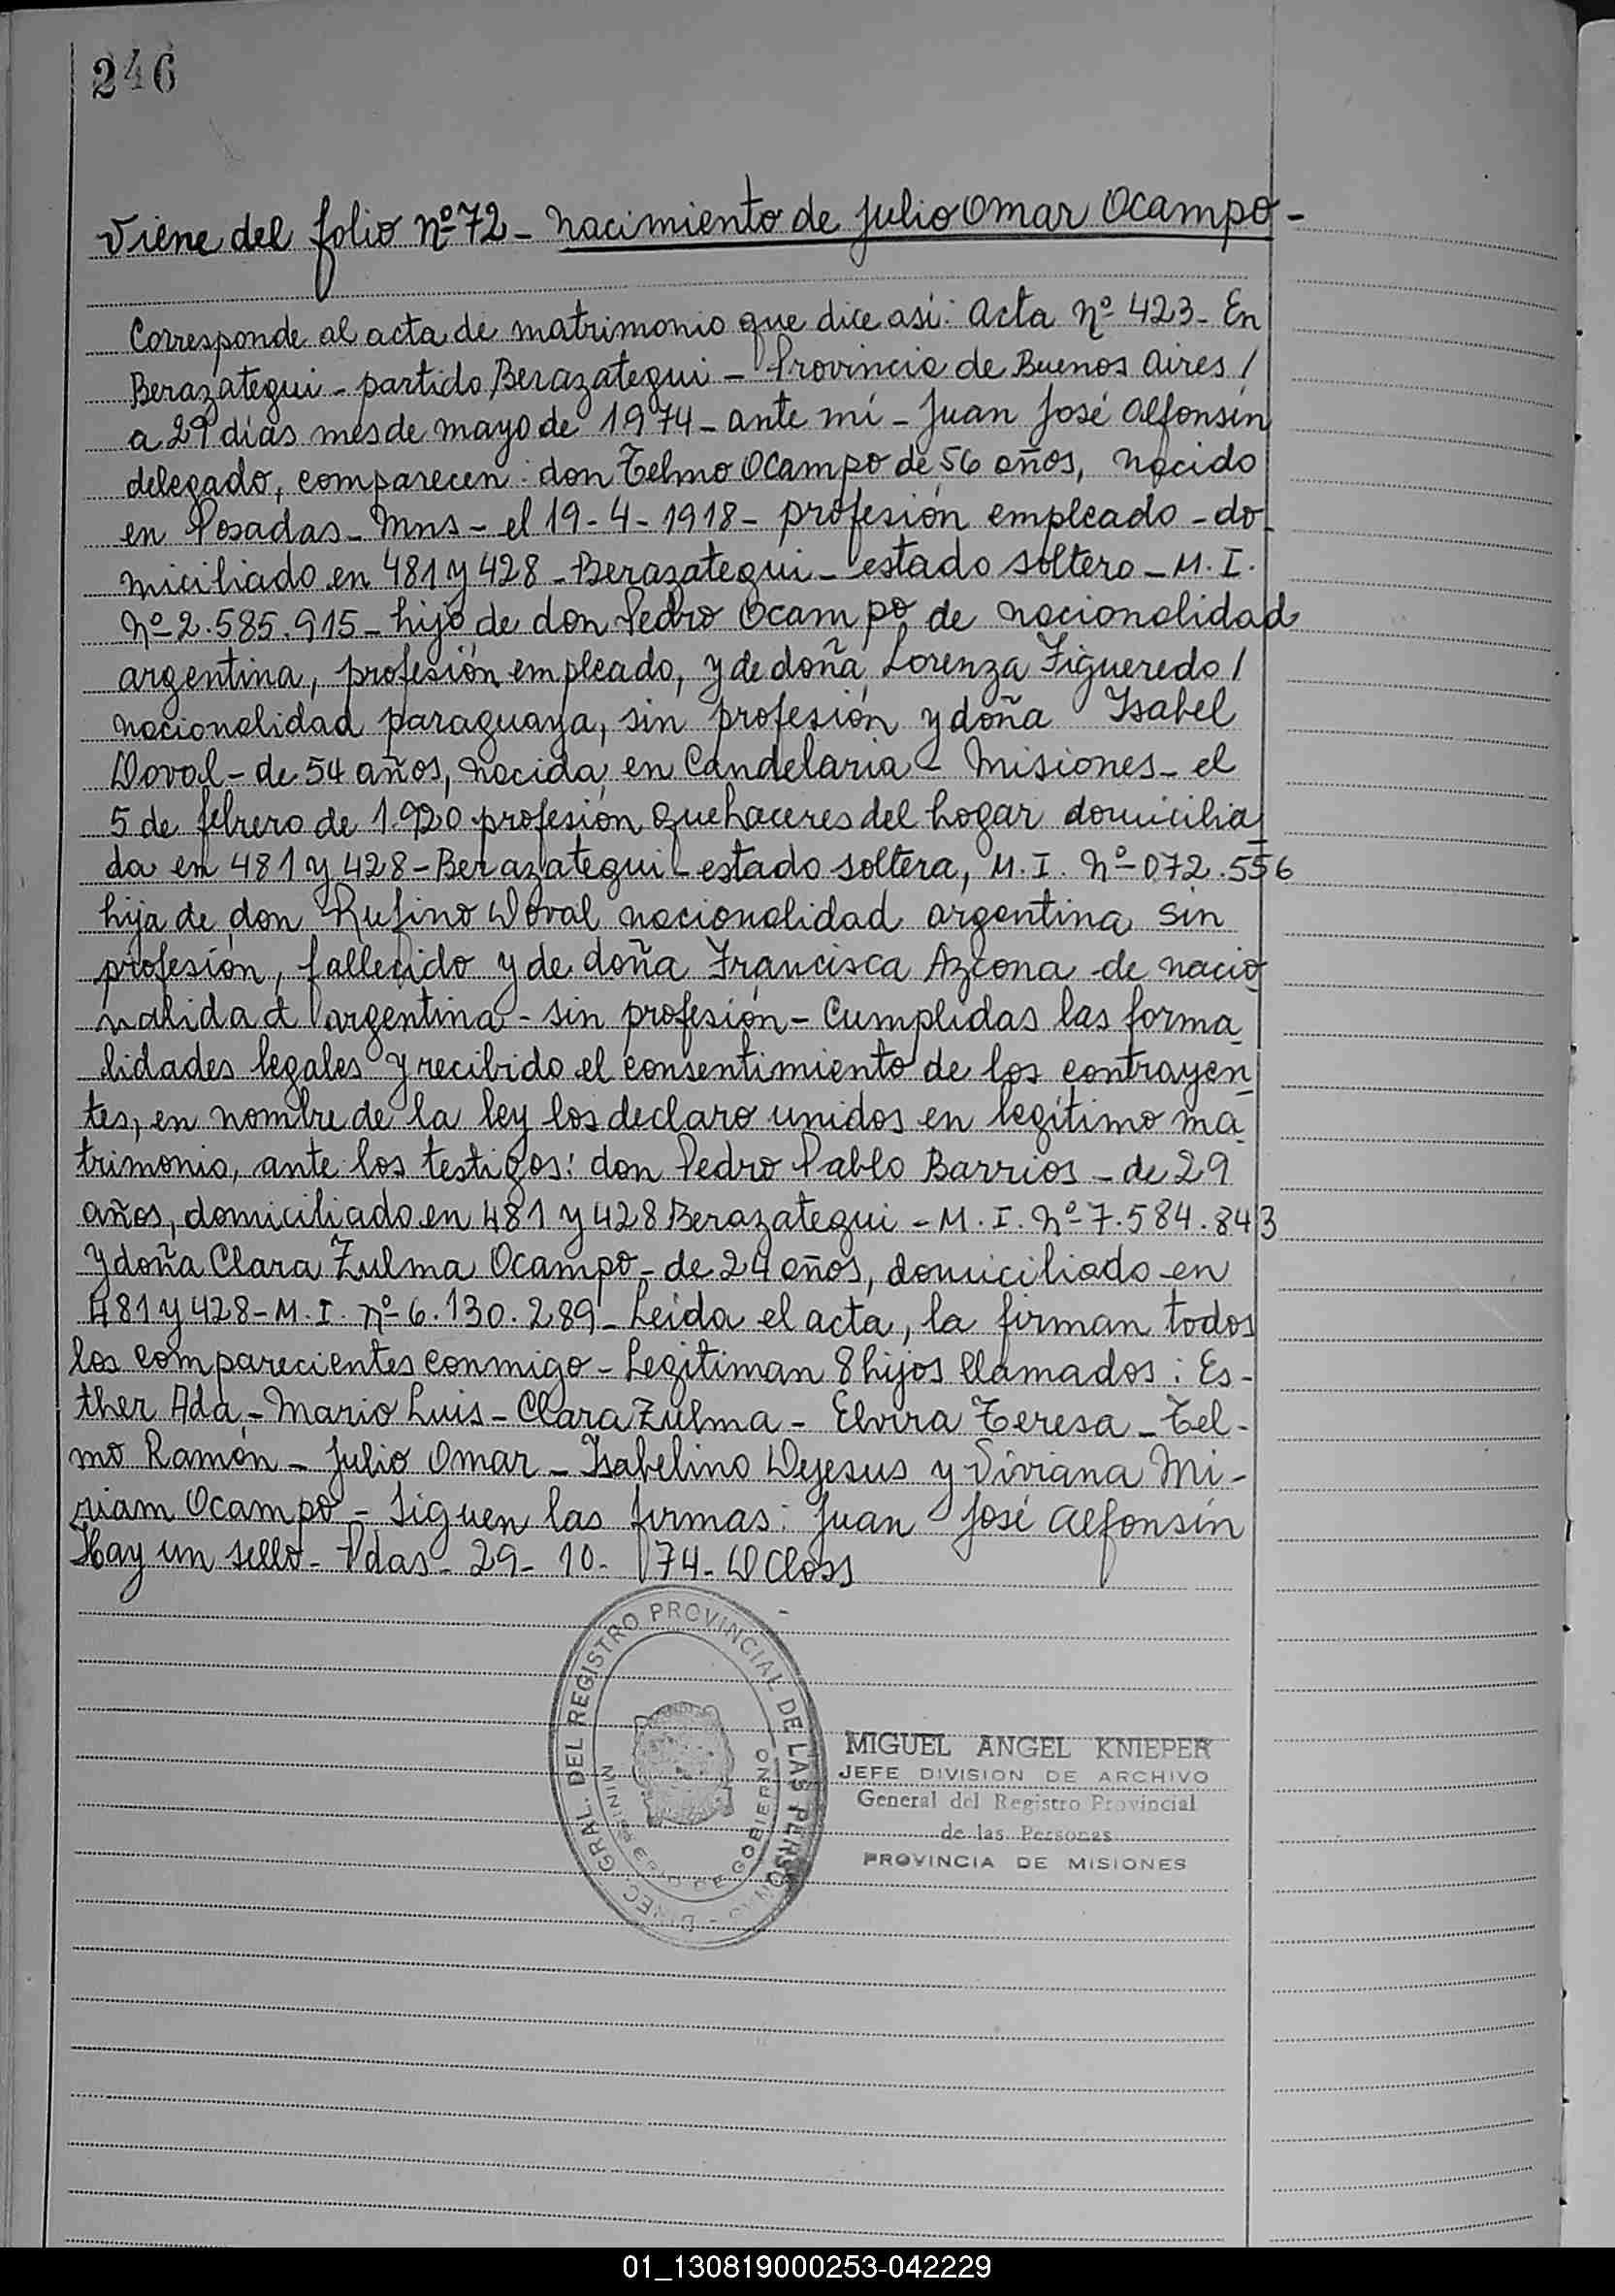 246
Viene del folio Nº 72 - Nacimiento de Julio Omar Ocampo -
Corresponde al acta de matrimonio que dice así: Acta Nº 423 - En
Berazategui - partido Berazategui - Provincia de Buenos Aires /
a 29 días mes de mayo de 1974 - ante mí - Juan José Alfonsín
delegado, comparecen: don Telmo Ocampo de 56 años, nacido
en Posadas - Mns - el 19-4-1918 - profesión empleado - do-
miciliado en 481 y 428 - Berazategui - estado soltero - M. I.
Nº 2.585.915 - hijo de don Pedro Ocampo de nacionalidad
argentina, profesión empleado, y de doña Lorenza Figueredo /
nacionalidad paraguaya, sin profesión y doña Isabel
Doval - de 54 años, nacida en Candelaria - Misiones - el
5 de febrero de 1.920 profesión quehaceres del hogar domicilia
da en 481 y 428 - Berazategui - estado soltera, M. I. Nº 072.556
hija de don Rufino Doval nacionalidad argentina sin
profesión, fallecido y de doña Francisca Azcona de nacio
nalidad argentina - sin profesión - Cumplidas las forma
lidades legales y recibido el consentimiento de los contrayen
tes, en nombre de la ley los declaro unidos en legítimo ma
trimonio, ante los testigos: don Pedro Pablo Barrios - de 29
años, domiciliado en 481 y 428 Berazategui - M. I. Nº 7.584.843
y doña Clara Zulma Ocampo - de 24 años, domiciliado en
481 y 428 - M. I. Nº 6.130.289 - Leída el acta, la firman todos
los comparecientes conmigo - Legitiman 8 hijos llamados: Es-
ther Ada - Mario Luis - Clara Zulma - Elvira Teresa - Tel-
mo Ramón - Julio Omar - Isabelino Dejesus y Viviana Mi-
riam Ocampo - Siguen las firmas: Juan José Alfonsín
Hay un sello - Pdas - 29 - 10 - 74 - D Closs
DIREC. GRAL. DEL REGISTRO PROVINCIAL DE LAS PERSONAS
MINISTERIO DE GOBIERNO
MIGUEL ANGEL KNIEPER
JEFE DIVISION DE ARCHIVO
General del Registro Provincial
de las Personas
PROVINCIA DE MISIONES
01_130819000253-042229